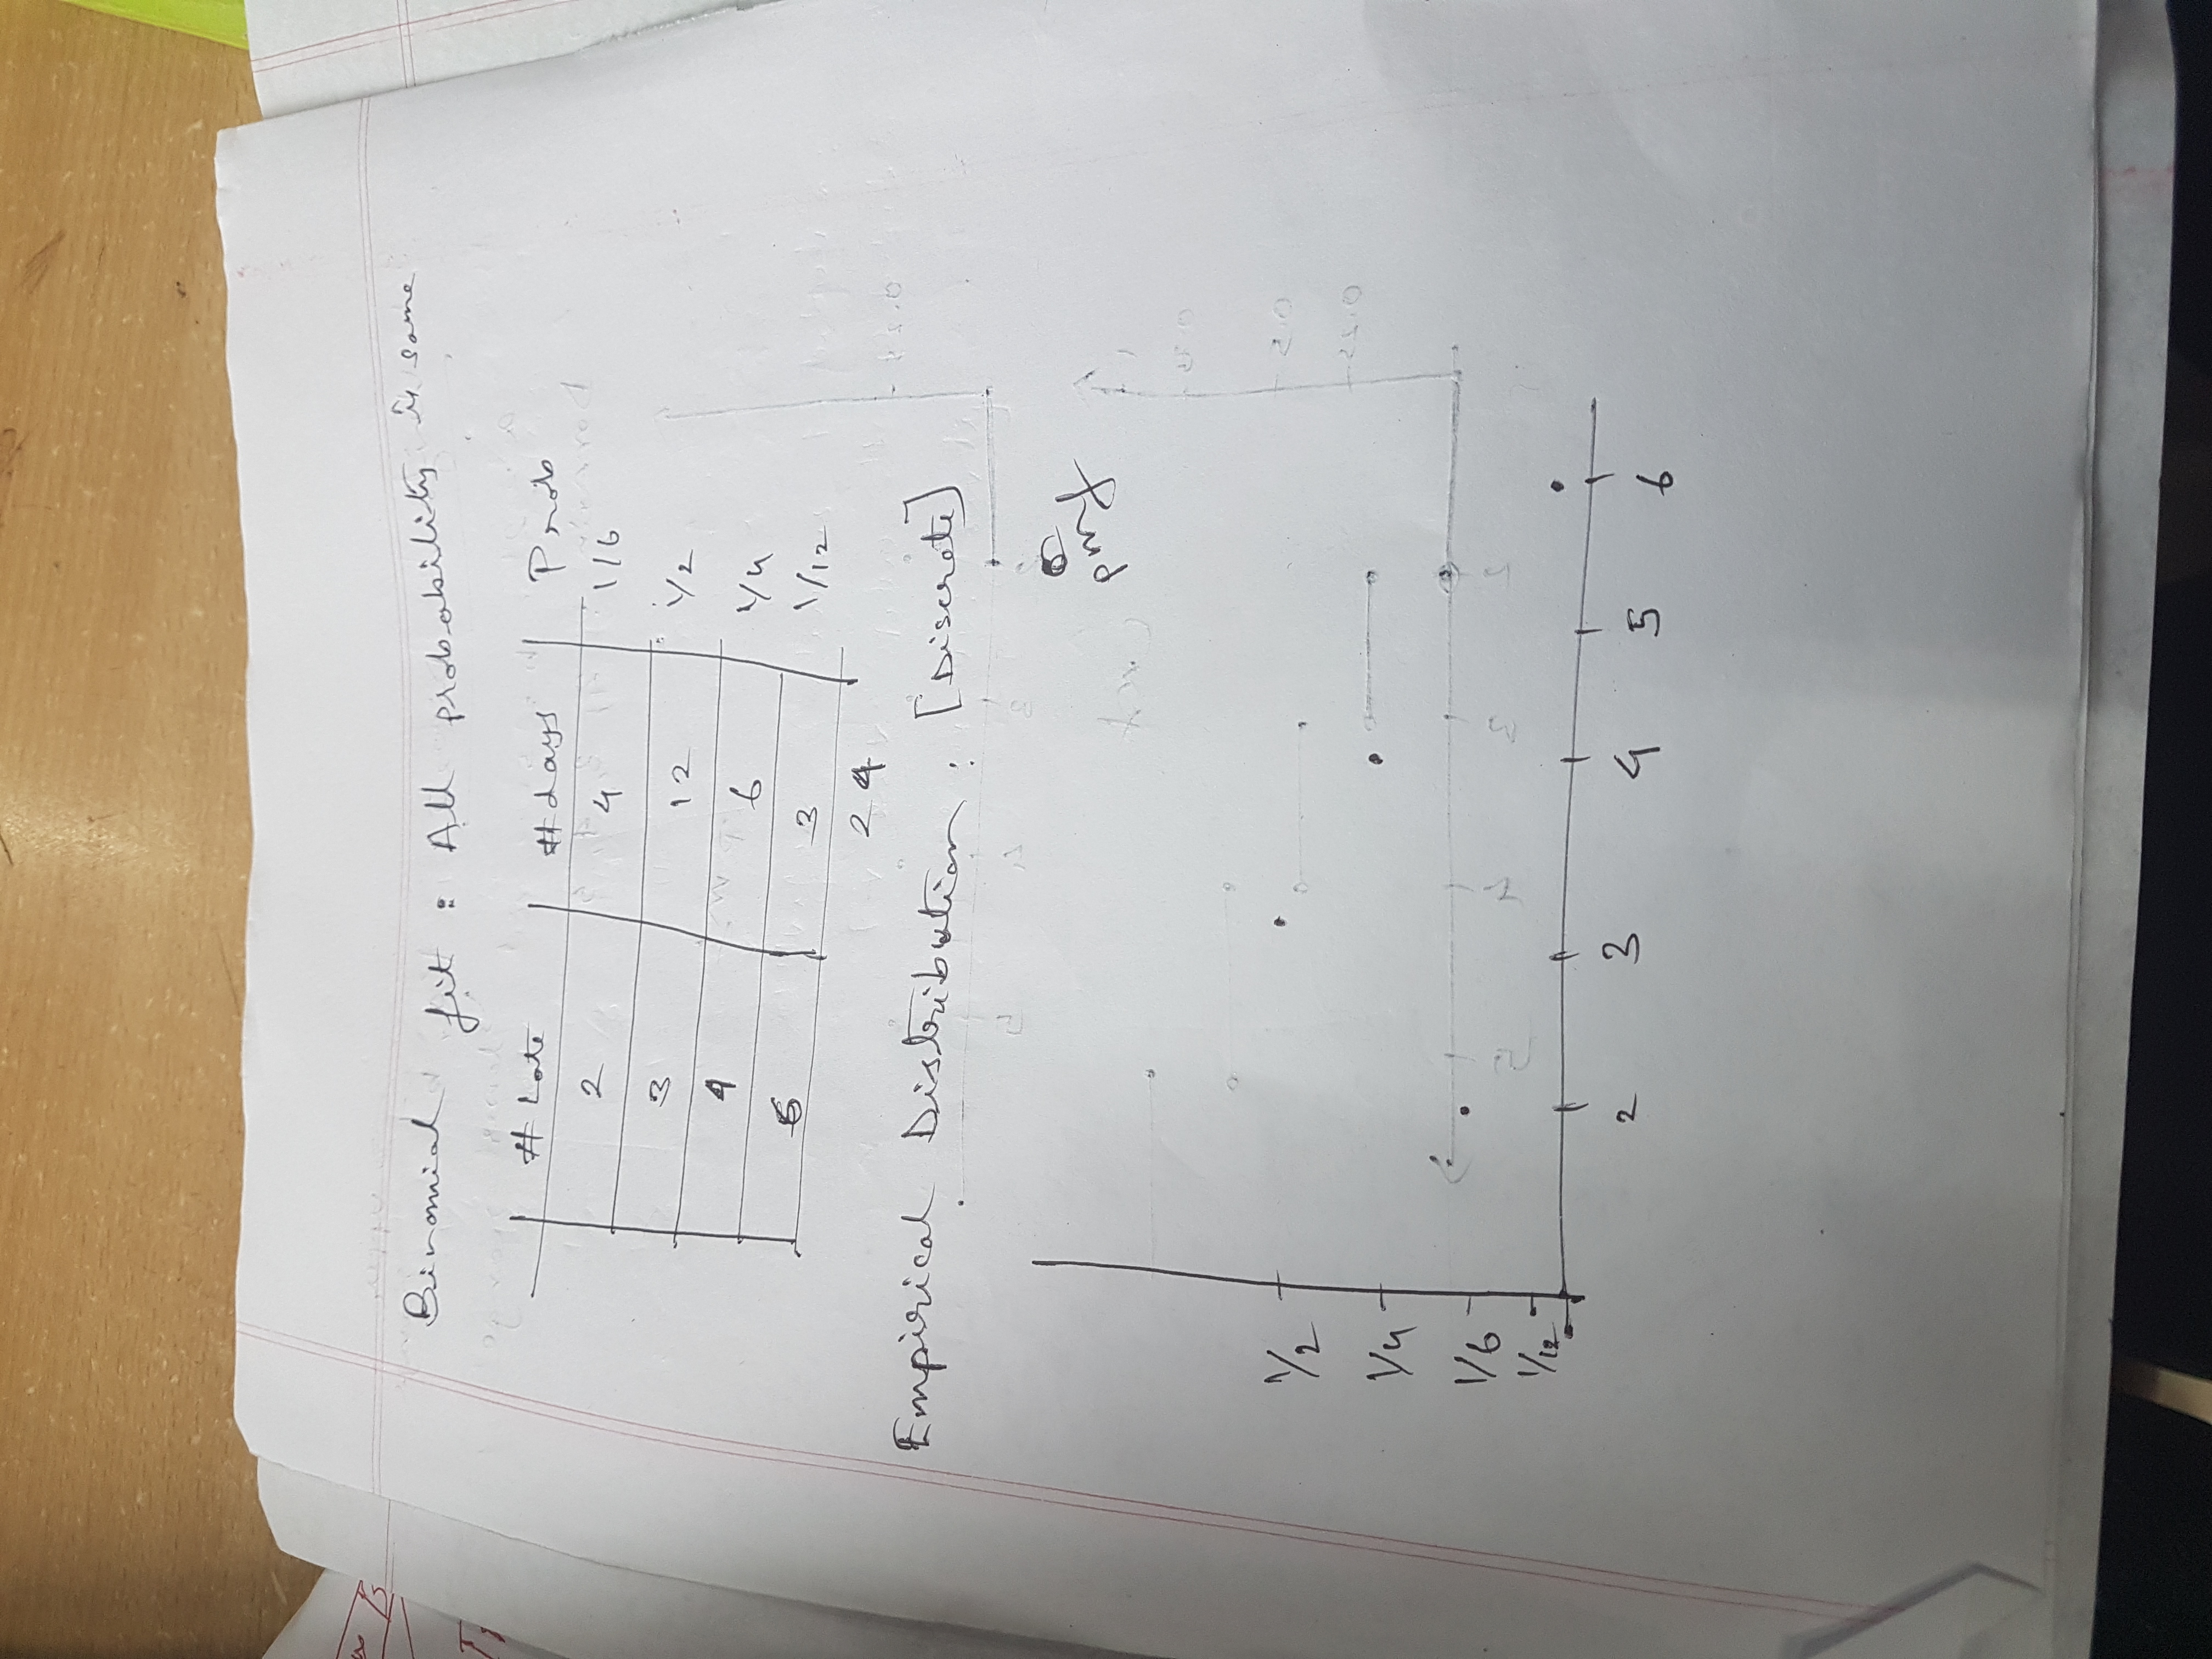 Binomial fit : All probability is same
# Late # days Prob
2 4 1/6
3 12 1/2
4 6 1/4
3 1/12
24
Empirical Distribution : [Discrete]
pmf
1/2
1/4
1/6
1/12
2 3 4 5 6